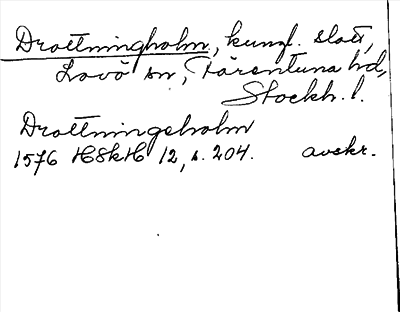 Drottningholm, kungl. slott,
Lovö sn, Färentuna hd,
Stockh. l.
Drottningeholm
1576 HSkH 12, s. 204. avskr.